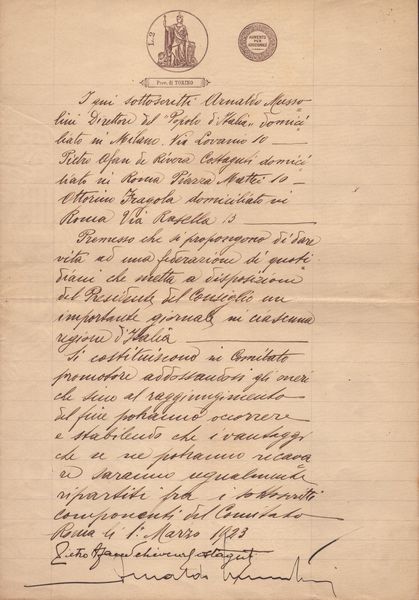 L. 2
AUMENTO
PER
ADDIZIONALE
Prov. di TORINO
I qui sottoscritti Arnaldo Musso
lini Direttore del "Popolo d'Italia„ domici
liato in Milano. Via Lovanio 10
Pietro Afan de Rivera Costaguti domici
liato in Roma Piazza Mattei 10
Ottorino Fragola domiciliato in
Roma Via Rasella 13
Premesso che si propongono di dare
vita ad una federazione di quoti
diani che metta a disposizione
del Presidente del Consiglio un
importante giornale in ciascuna
regione d'Italia
Si costituiscono in Comitato
promotore addossandosi gli oneri
che sino al raggiungimento
del fine potranno occorrere
e stabilendo che i vantaggi
che se ne potranno ricava
re saranno ugualmente
ripartiti fra i sottoscritti
componenti del Comitato
Roma li 1° Marzo 1923
Pietro Afan de Rivera Costaguti
Arnaldo Mussolini